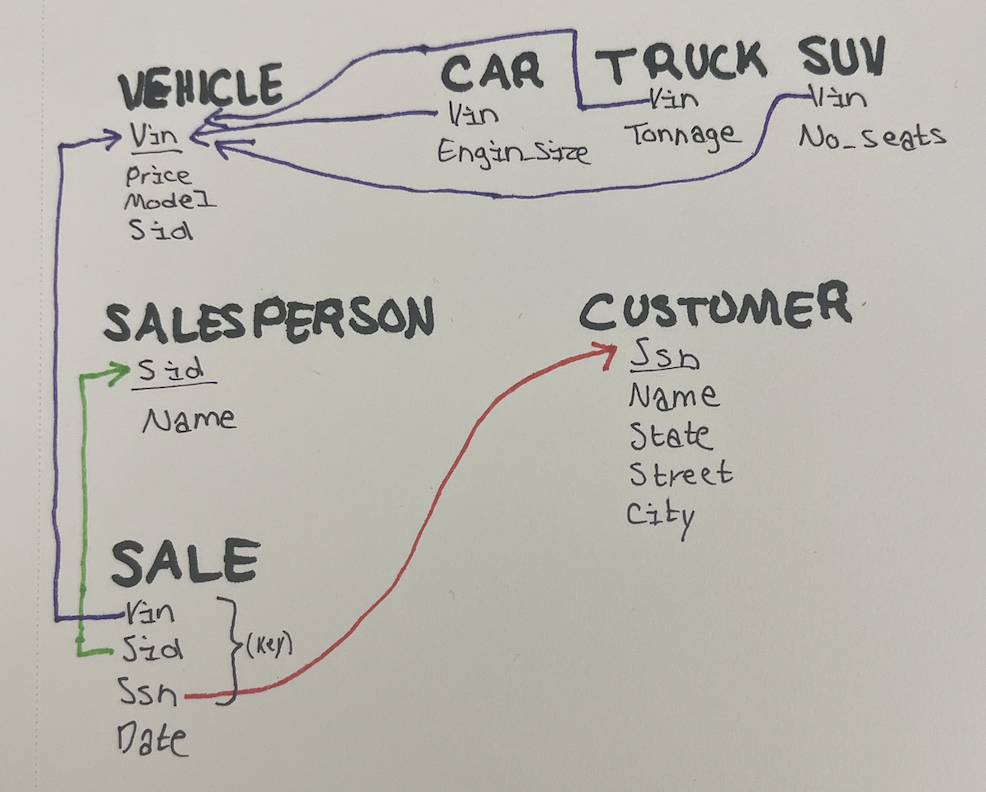 VEHICLE
Vin
Price
Model
Sid
CAR
Vin
Engin_Size
TRUCK
Vin
Tonnage
SUV
Vin
No_seats
SALESPERSON
Sid
Name
CUSTOMER
Ssn
Name
State
Street
City
SALE
Vin
Sid
Ssn
(Key)
Date